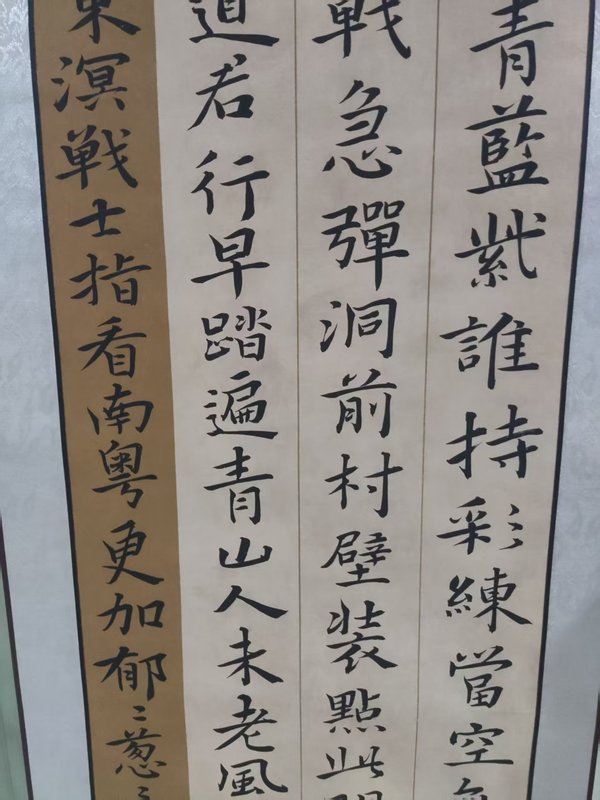 青藍紫誰持彩練當空
戦急彈洞前村壁裝點此
道君行早踏遍青山人未老風
東溟戦士指看南粵更加郁〻葱〻